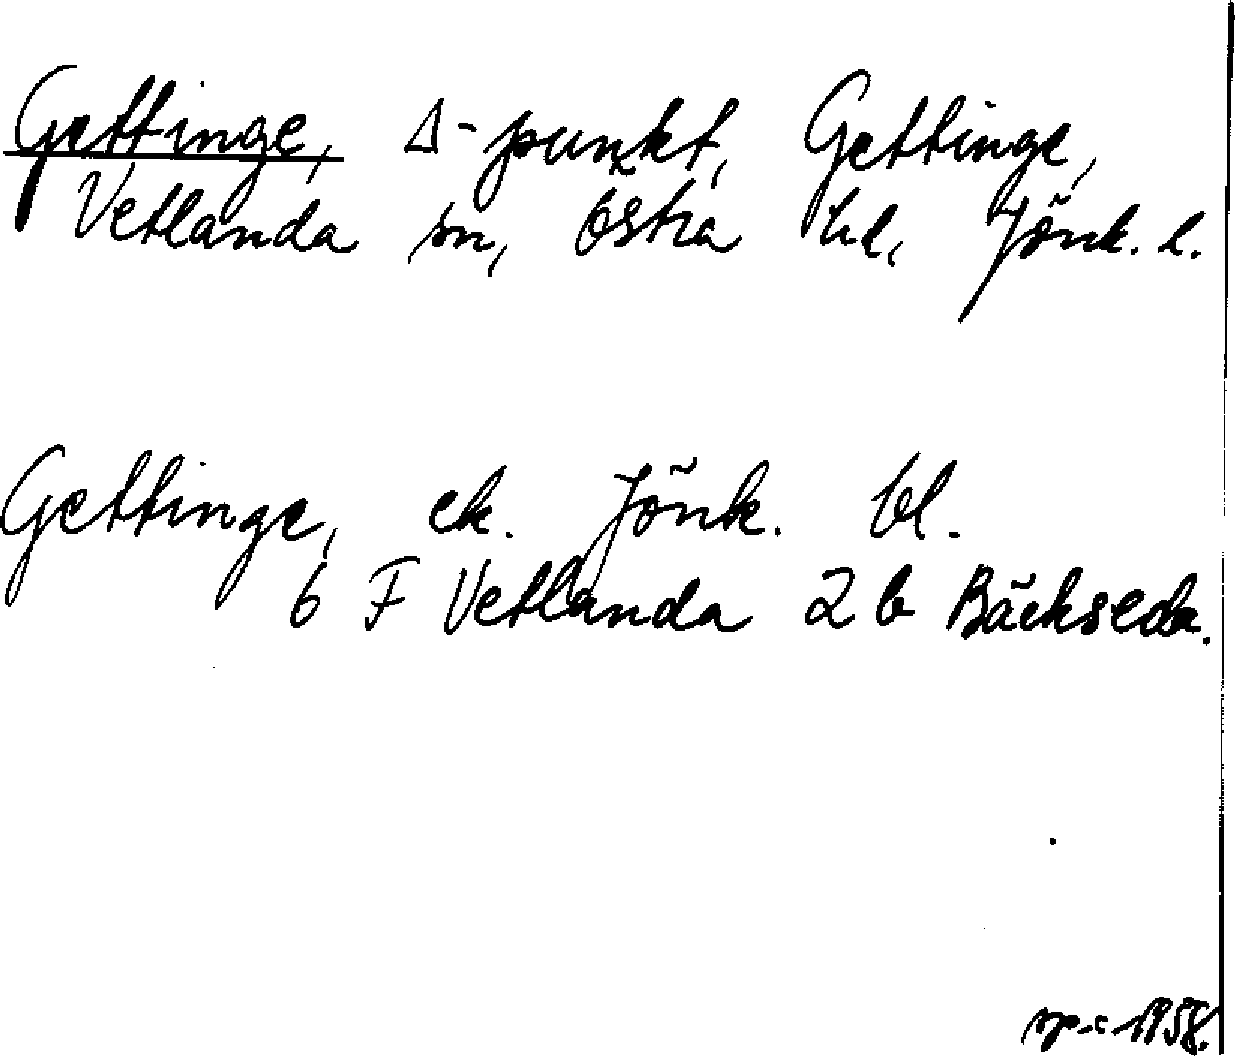 Gettinge, Δ-punkt, Gettinge,
Vetlanda sn, Östra hd, Jönk. l.
Gettinge, ek. Jönk. bl.
6 F Vetlanda 2 b Bäckseda.
1958.